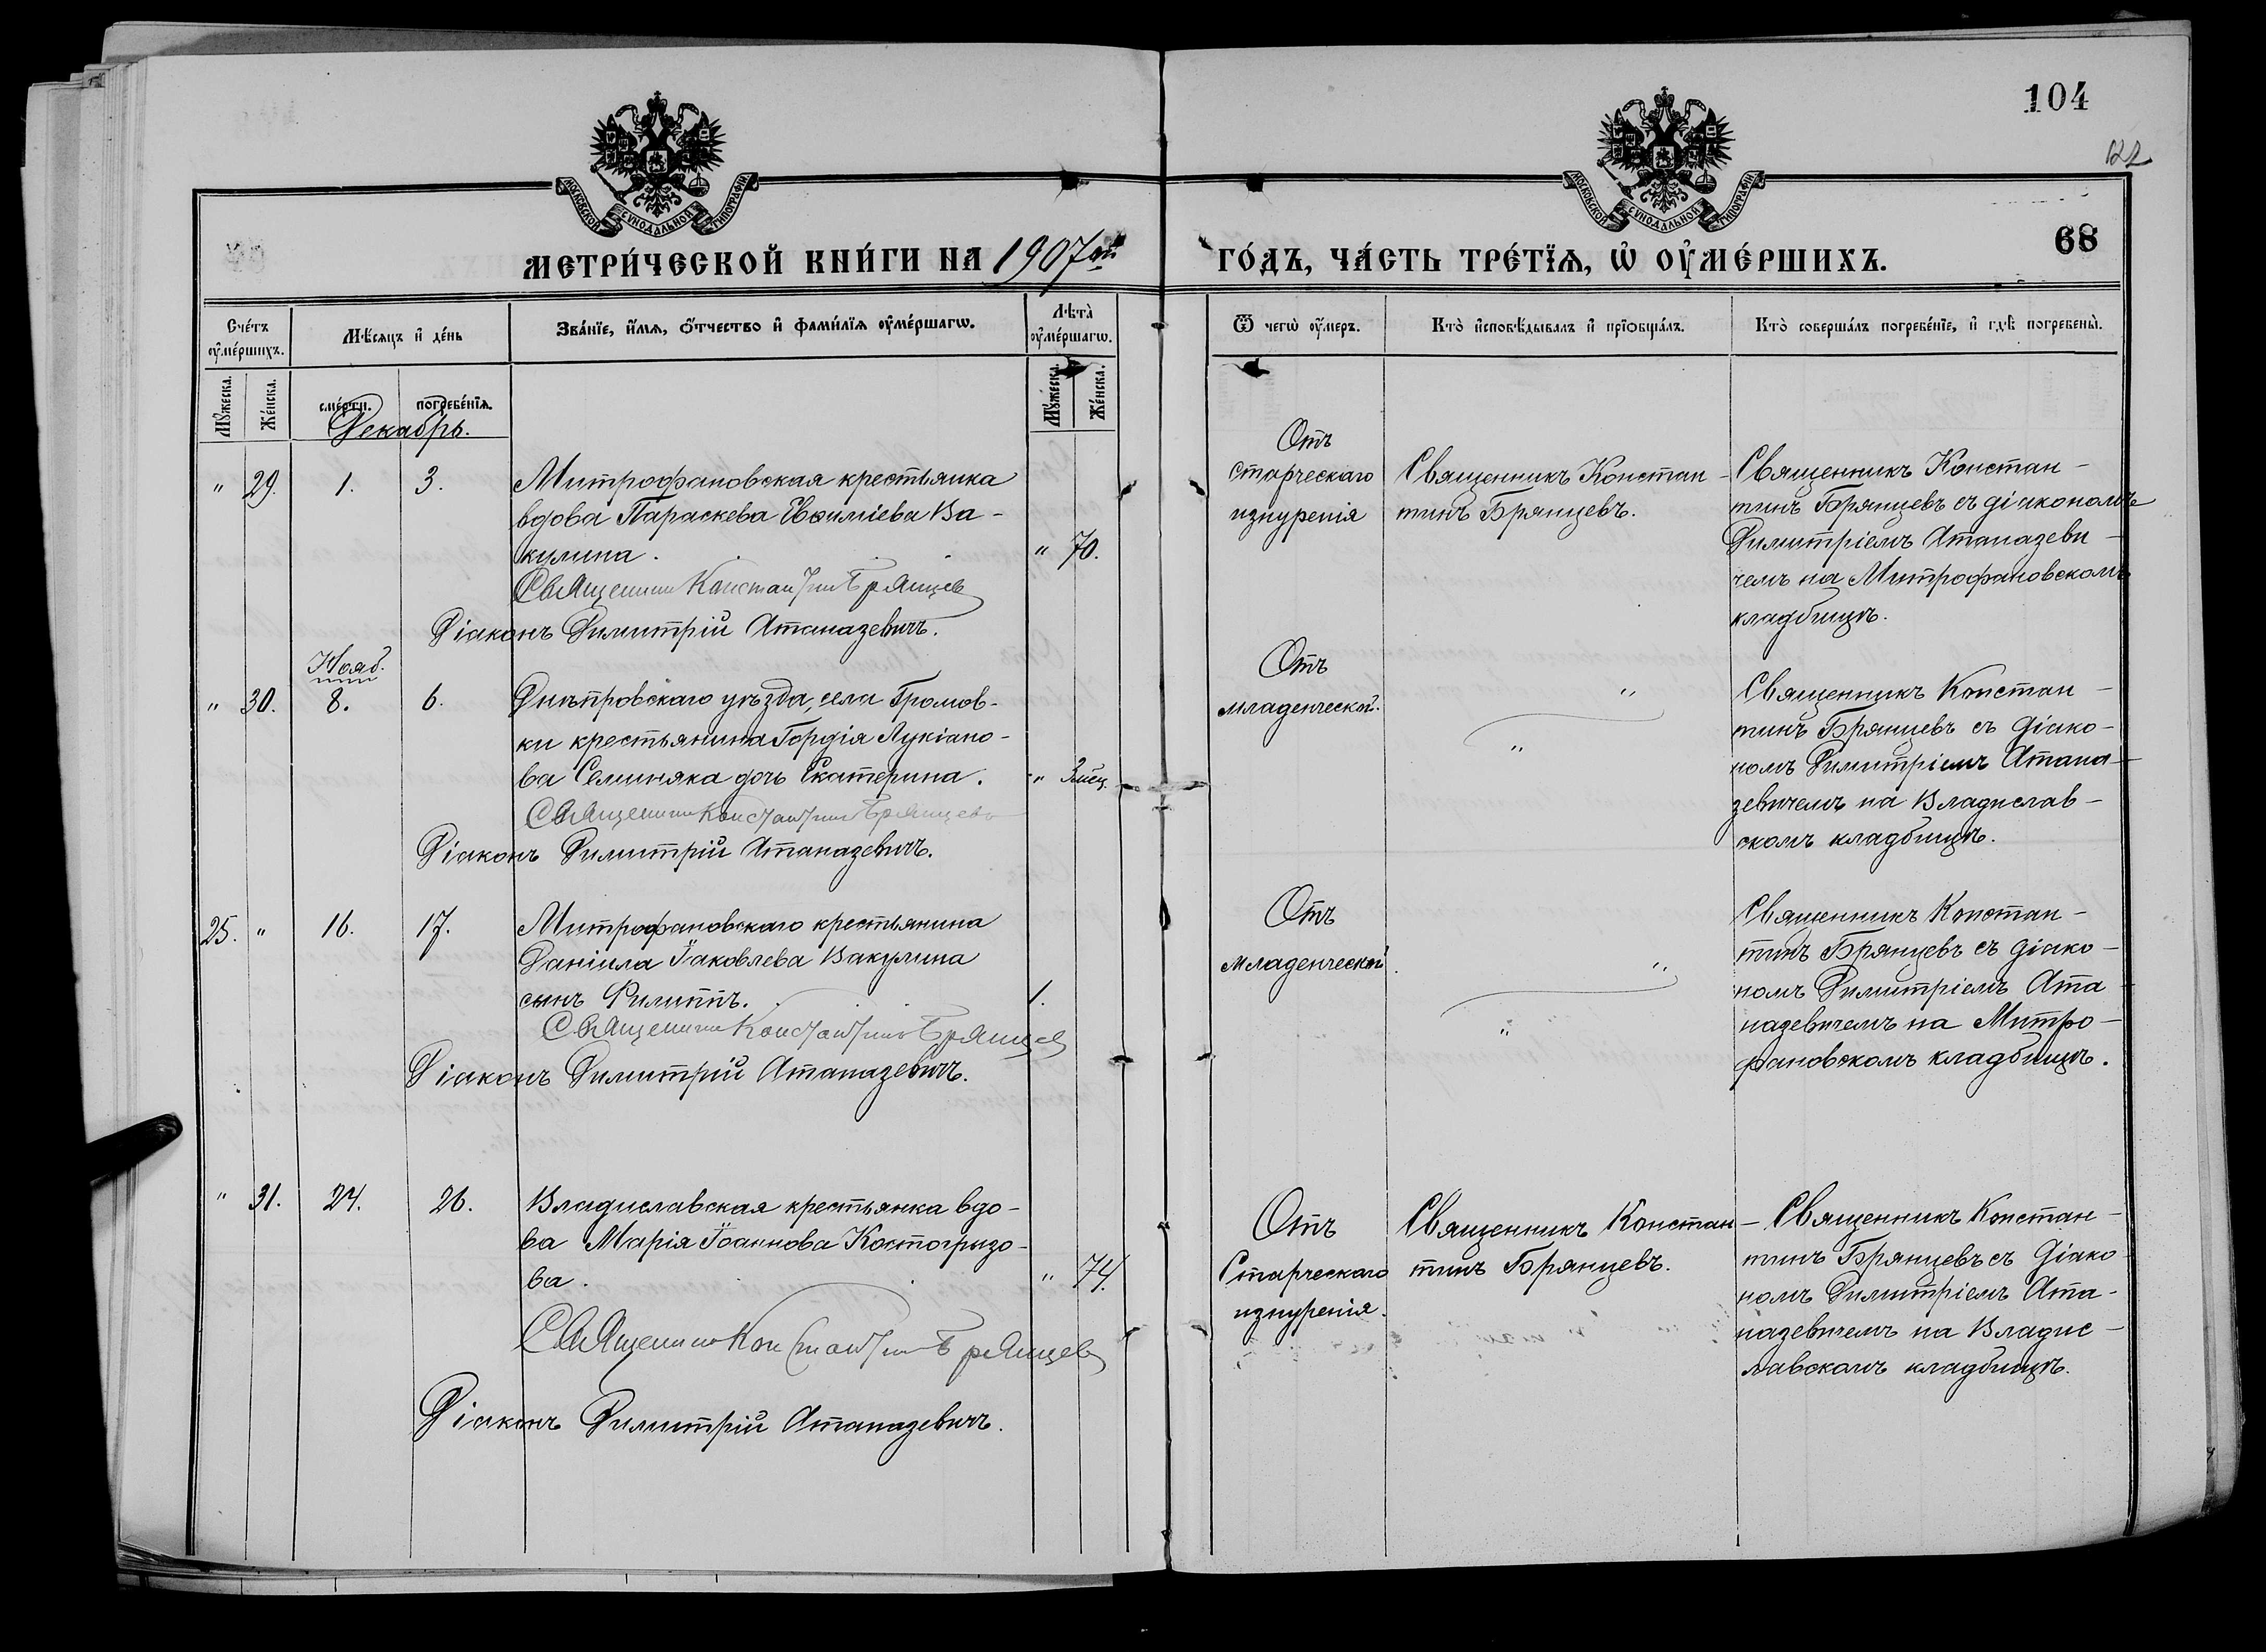 104
122
МОСКОВСКОЙ СѴНОДАЛЬНОЙ ТИПОГРАФІИ
МОСКОВСКОЙ СѴНОДАЛЬНОЙ ТИПОГРАФІИ
68
МЕТРИ́ЧЕСКОЙ КНИ́ГИ НА 1907 ый
ГО́ДЪ, ЧА́СТЬ ТРЕ́ТЇѦ, Ѡ҆ ОУ҆МЕ́РШИХЪ.
Сче́тъ оу҆ме́ршихъ.
Мѣ́сяцъ и҆ де́нь
Зва́нїе, и҆́мѧ, ѻ҆́тчество и҆ фами́лїѧ оу҆ме́ршагѡ.
Лѣта̀ оу҆ме́ршагѡ.
Ѿ чегѡ̀ оу҆́меръ.
Кто̀ и҆сповѣ́дывалъ и҆ прїѡбща́лъ.
Кто̀ соверша́лъ погребе́нїе, и҆ гдѣ̀ погребены̀.
Мꙋ́жеска.
Же́нска.
сме́рти.
погребе́нїѧ.
Мꙋ́жеска.
Же́нска.
Декабрь.
" 29. 1. 3. Митрофановская крестьянка
вдова Параскева Евѳиміева Ва-
кулина. " 70.
Священникъ Константинъ Брянцевъ
Діаконъ Димитрій Атаназевичъ.
Отъ
старческаго
изнуренія
Священникъ Констан-
тинъ Брянцевъ.
Священникъ Констан-
тинъ Брянцевъ съ діакономъ
Димитріемъ Атаназеви-
чемъ на Митрофановскомъ
кладбищѣ.
Нояб.
" 30. 8. 6. Днѣпровскаго уѣзда, села Громов-
ки крестьянина Гордія Лукіано-
ва Семиняка дочь Екатерина. " 3 мѣс.
Священникъ Константинъ Брянцевъ
Діаконъ Димитрій Атаназевичъ.
Отъ
младенческой.
"
"
Священникъ Констан-
тинъ Брянцевъ съ діако-
номъ Димитріемъ Атана-
зевичемъ на Владислав-
скомъ кладбищѣ.
25. " 16. 17. Митрофановскаго крестьянина
Даніила Іаковлева Вакулина
сынъ Филиппъ. 1.
Священникъ Константинъ Брянцевъ
Діаконъ Димитрій Атаназевичъ.
Отъ
младенческой.
"
"
Священникъ Констан-
тинъ Брянцевъ съ діако-
номъ Димитріемъ Ата-
назевичемъ на Митро-
фановскомъ кладбищѣ.
" 31. 24. 26. Владиславская крестьянка вдо-
ва Марія Іоаннова Костогрызо-
ва. " 74.
Священникъ Константинъ Брянцевъ
Діаконъ Димитрій Атаназевичъ.
Отъ
Старческаго
изнуренія.
Священникъ Констан-
тинъ Брянцевъ.
Священникъ Констан-
тинъ Брянцевъ съ діако-
номъ Димитріемъ Ата-
назевичемъ на Владис-
лавскомъ кладбищѣ.